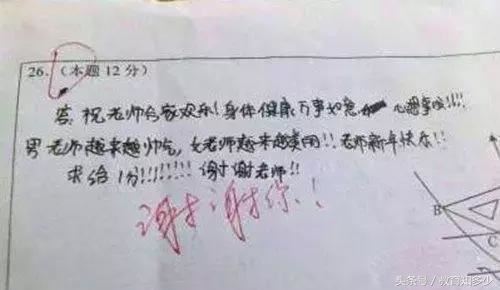 26.（本题12分）
答：祝老师合家欢乐！身体健康 万事如意 心想事成！！！！
男老师越来越帅气，女老师越来越美丽！！老师新年快乐！！
求给1分！！！！！！！谢谢老师！！
谢谢你！！
B
C
头条号 / 教育知多少